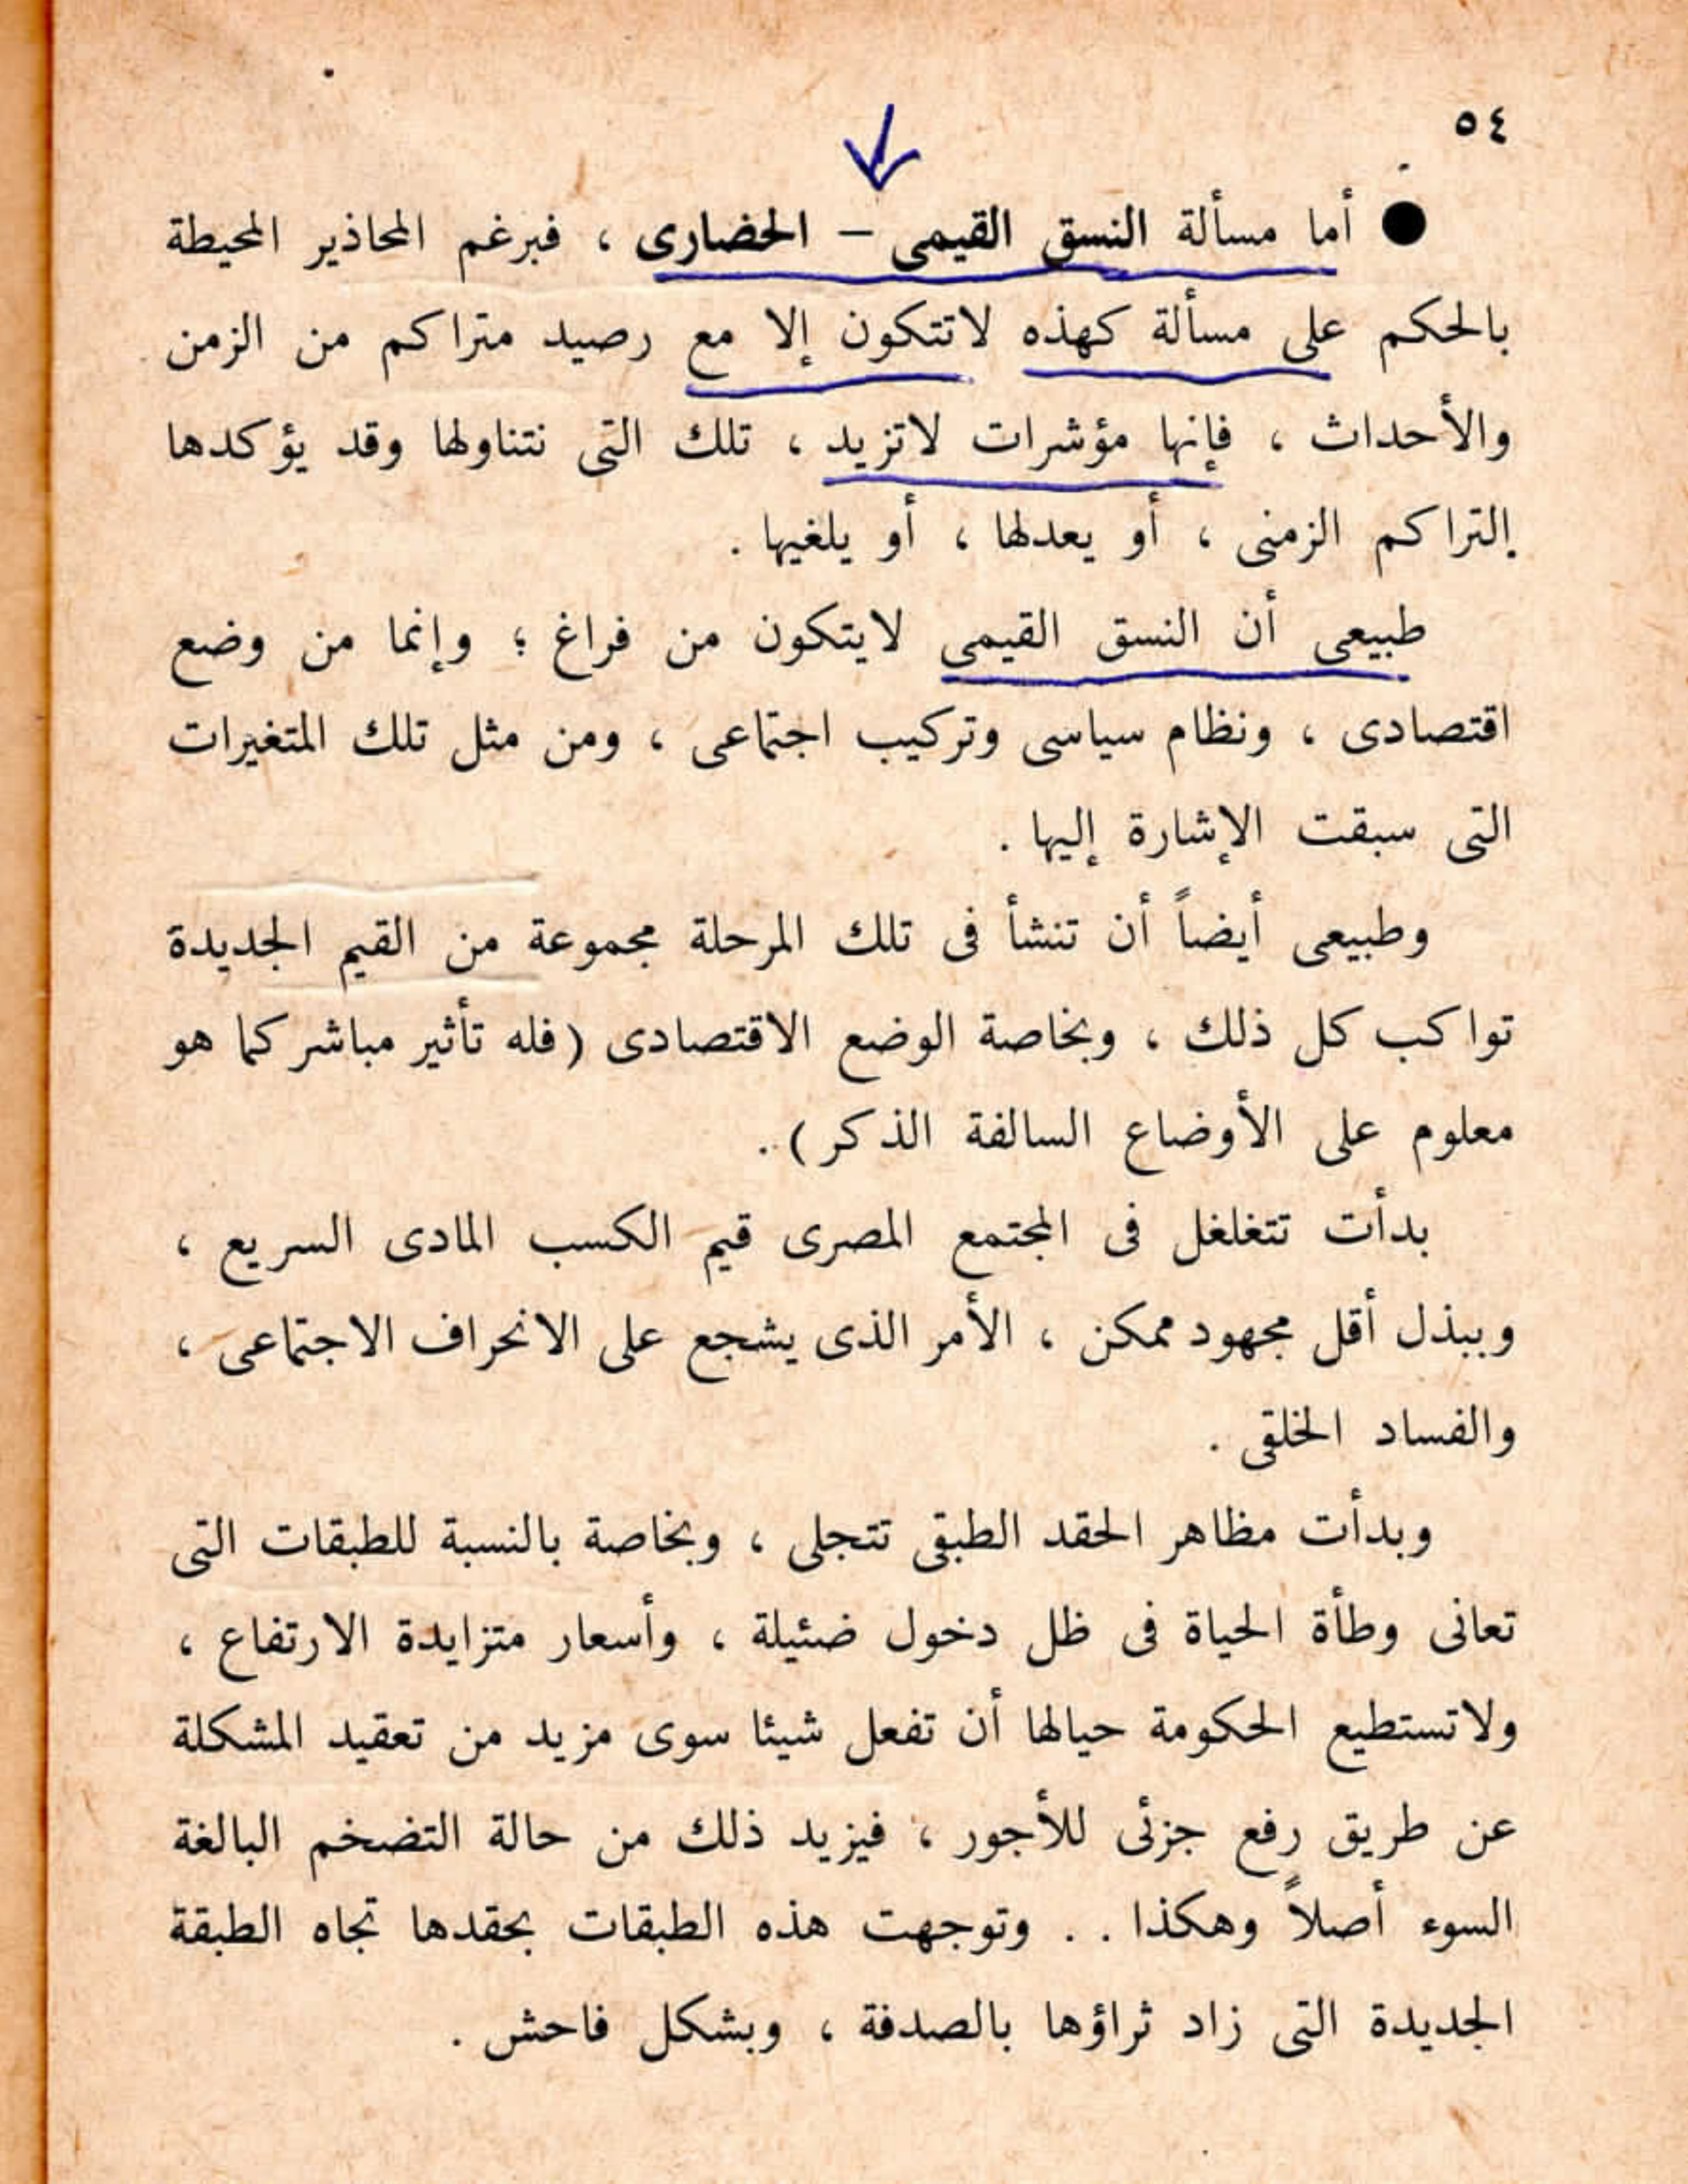 ٥٤
● أما مسألة النسق القيمى – الحضارى ، فبرغم المحاذير المحيطة
بالحكم على مسألة كهذه لاتتكون إلا مع رصيد متراكم من الزمن
والأحداث ، فإنها مؤشرات لاتزيد ، تلك التى نتناولها وقد يؤكدها
التراكم الزمنى ، أو يعدلها ، أو يلغيها .
طبيعى أن النسق القيمى لايتكون من فراغ ؛ وإنما من وضع
اقتصادى ، ونظام سياسى وتركيب اجتماعى ، ومن مثل تلك المتغيرات
التى سبقت الإشارة إليها .
وطبيعى أيضاً أن تنشأ فى تلك المرحلة مجموعة من القيم الجديدة
تواكب كل ذلك ، وبخاصة الوضع الاقتصادى (فله تأثير مباشر كما هو
معلوم على الأوضاع السالفة الذكر) .
بدأت تتغلغل فى المجتمع المصرى قيم الكسب المادى السريع ،
وببذل أقل مجهود ممكن ، الأمر الذى يشجع على الانحراف الاجتماعى ،
والفساد الخلقى .
وبدأت مظاهر الحقد الطبقى تتجلى ، وبخاصة بالنسبة للطبقات التى
تعانى وطأة الحياة فى ظل دخول ضئيلة ، وأسعار متزايدة الارتفاع ،
ولاتستطيع الحكومة حيالها أن تفعل شيئا سوى مزيد من تعقيد المشكلة
عن طريق رفع جزئى للأجور ، فيزيد ذلك من حالة التضخم البالغة
السوء أصلاً وهكذا . . وتوجهت هذه الطبقات بحقدها تجاه الطبقة
الجديدة التى زاد ثراؤها بالصدفة ، وبشكل فاحش .